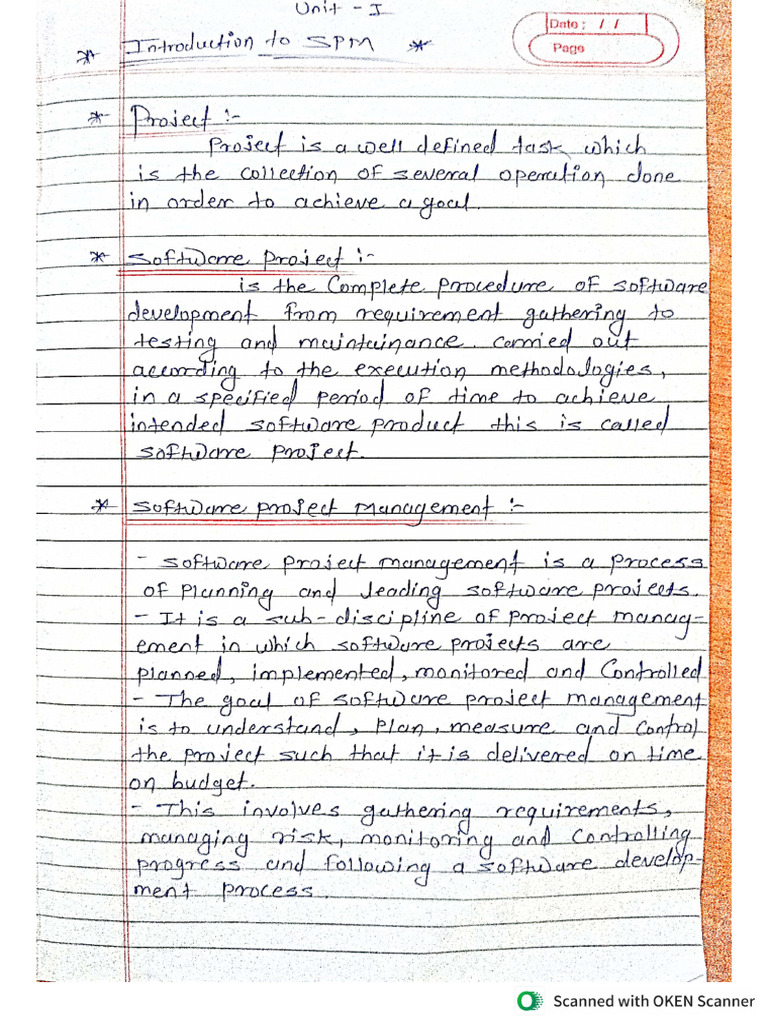 Unit - I
* Introduction to SPM *
Date : / /
Page
* Project :-
Project is a well defined task which
is the collection of several operation done
in order to achieve a goal.
* Software Project :-
is the Complete Procedure of software
development from requirement gathering to
testing and maintainance. carried out
according to the execution methodologies,
in a specified period of time to achieve
intended software product this is called
software project.
* Software Project Management :-
- software project management is a process
of planning and leading software projects.
- It is a sub-discipline of project manag-
ement in which software projects are
planned, implemented, monitored and Controlled
- The goal of software project management
is to understand, plan, measure and control
the project such that it is delivered on time
on budget.
- This involves gathering requirements,
managing risk, monitoring and controlling
progress and following a software develop-
ment process.
Scanned with OKEN Scanner